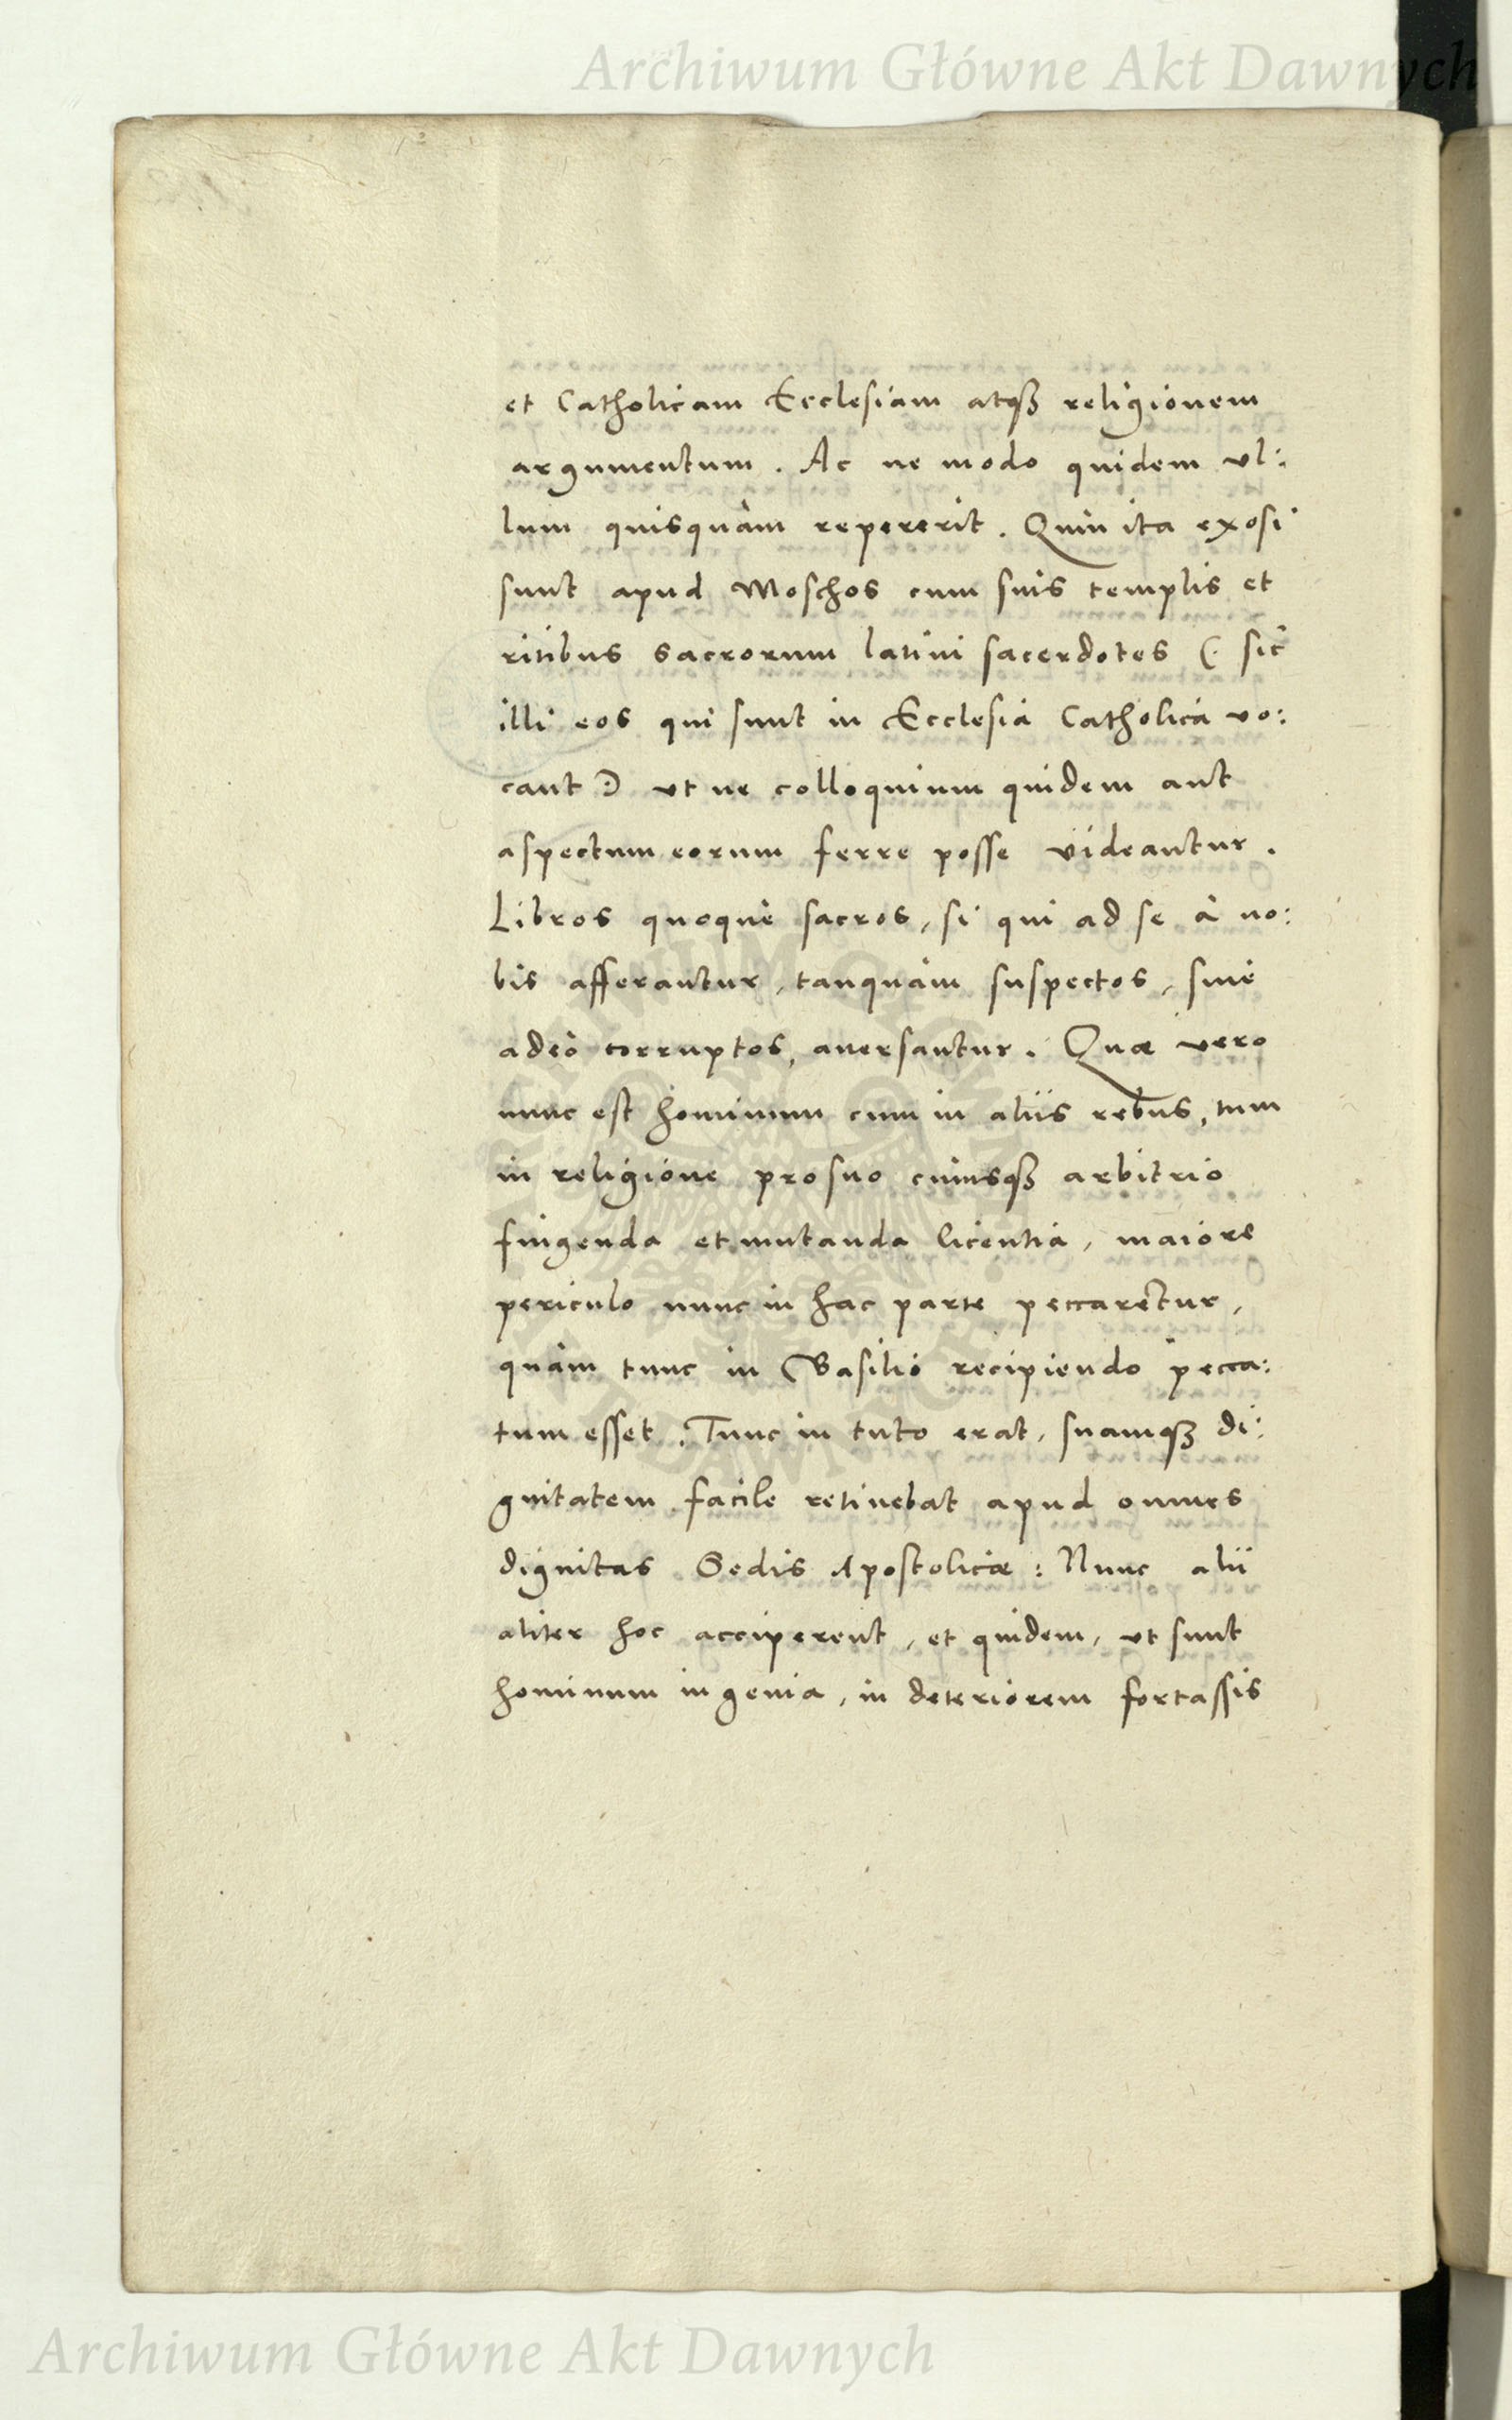 Archiwum Główne Akt Dawnych
et Catholicam Ecclesiam atqꝫ religionem
argumentum. Ac ne modo quidem vl:
lum quisquàm repererit. Quin ita exosi
sunt apud Moschos cum suis templis et
ritibus sacrorum latini sacerdotes (: sic
illi eos qui sunt in Ecclesia Catholica vo:
cant :) vt ne colloquium quidem aut
aspectum eorum ferre posse videantur.
Libros quoque sacros, si qui ad se à no:
bis afferantur, tanquàm suspectos, siue
adeò corruptos, auersantur. Quæ vero
nunc est hominum cum in aliis rebus, tum
in religione pro suo cuiusqꝫ arbitrio
fingenda et mutanda licentia, maiore
periculo nunc in hac parte peccaretur,
quàm tunc in Basilio recipiendo pecca:
tum esset. Tunc in tuto erat, suamqꝫ di:
gnitatem facile retinebat apud omnes
dignitas Sedis Apostolicæ: Nunc alii
aliter hoc acciperent, et quidem, vt sunt
hominum ingenia, in deteriorem fortassis
Archiwum Główne Akt Dawnych